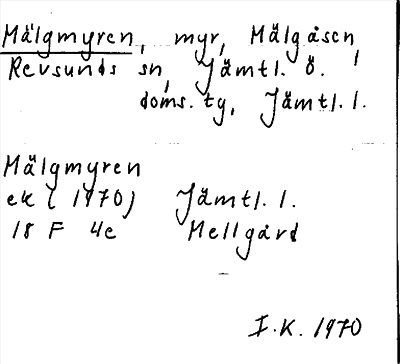 Mälgmyren, myr, Mälgåsen,
Revsunds sn, Jämtl. ö.
doms. tg, Jämtl. l.
Mälgmyren
ek (1970) Jämtl. l.
18 F 4e Mellgård
I.K. 1970